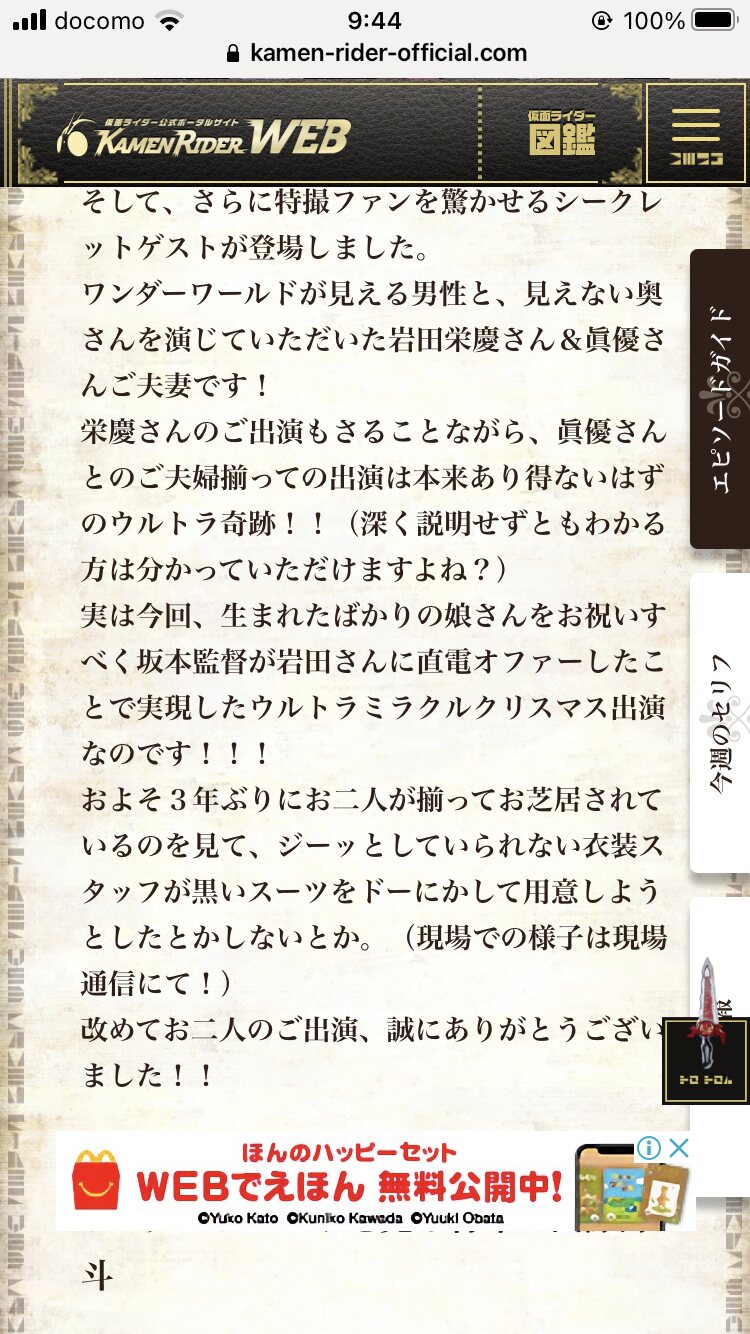 docomo 9:44 100%
kamen-rider-official.com
仮面ライダー公式ポータルサイト
KAMEN RIDER WEB
仮面ライダー
図鑑
そして、さらに特撮ファンを驚かせるシークレ
ットゲストが登場しました。
ワンダーワールドが見える男性と、見えない奥
さんを演じていただいた岩田栄慶さん＆眞優さ
んご夫妻です！
栄慶さんのご出演もさることながら、眞優さん
とのご夫婦揃っての出演は本来あり得ないはず
のウルトラ奇跡！！（深く説明せずともわかる
方は分かっていただけますよね？）
実は今回、生まれたばかりの娘さんをお祝いす
べく坂本監督が岩田さんに直電オファーしたこ
とで実現したウルトラミラクルクリスマス出演
なのです！！！
およそ３年ぶりにお二人が揃ってお芝居されて
いるのを見て、ジーッとしていられない衣装ス
タッフが黒いスーツをドーにかして用意しよう
としたとかしないとか。（現場での様子は現場
通信にて！）
改めてお二人のご出演、誠にありがとうござい
ました！！
エピソードガイド
今週のセリフ
報
ほんのハッピーセット
WEBでえほん 無料公開中!
©Yuko Kato ©Kuniko Kawada ©Yuuki Obata
斗